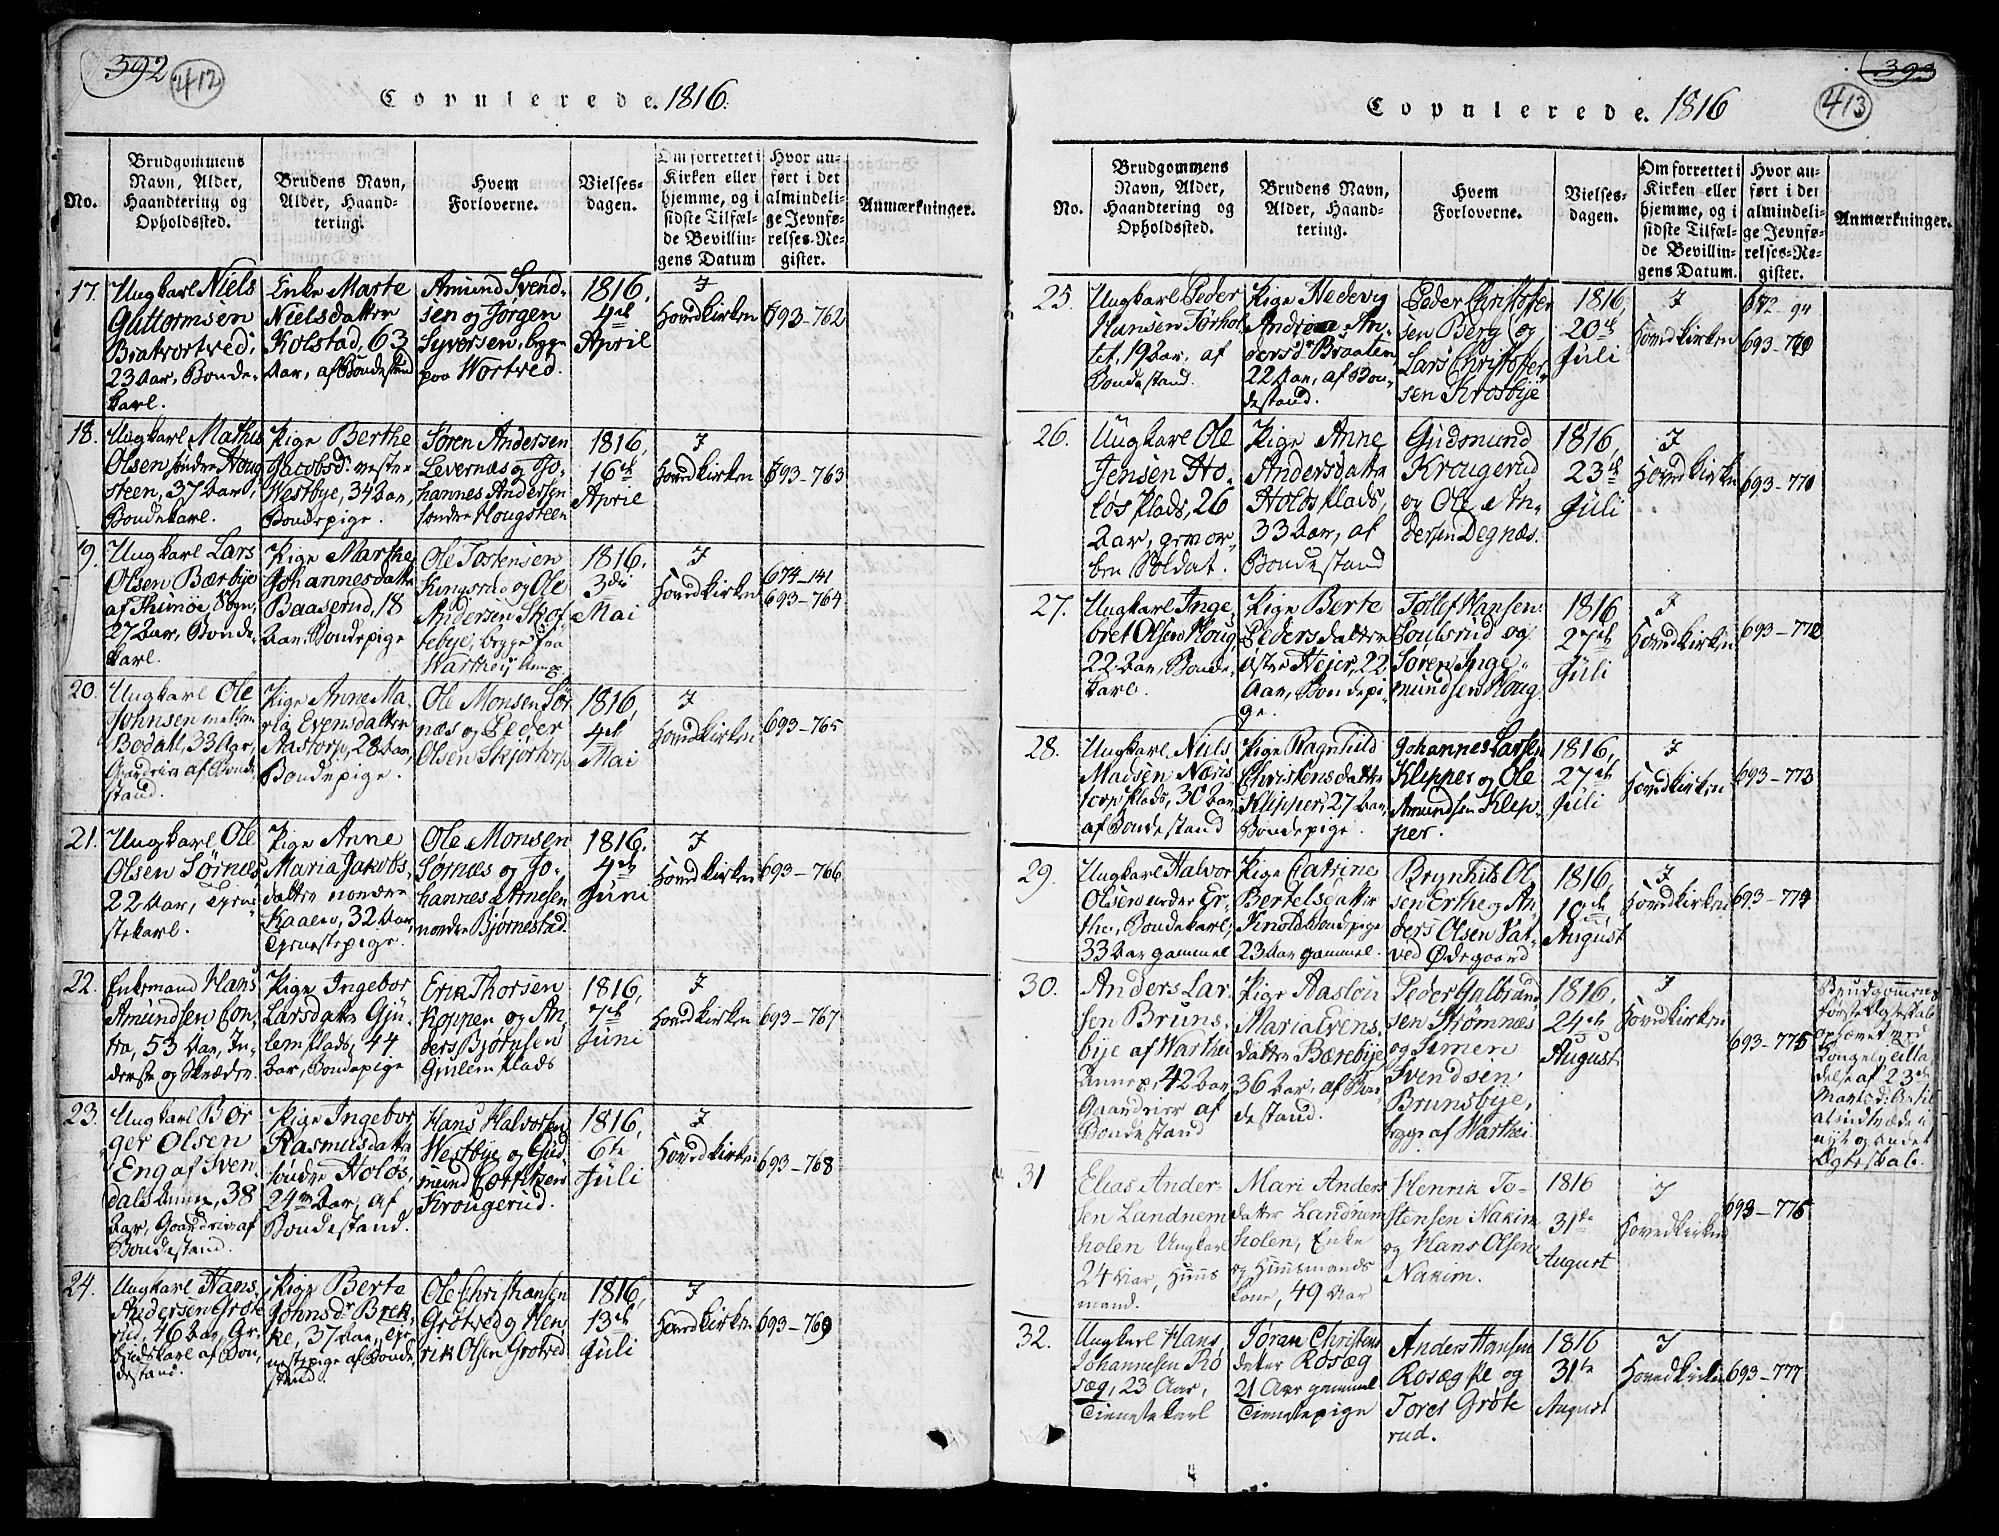 392
412
Copulerede. 1816.
No.
Brudgommens
Navn, Alder,
Haandtering og
Opholdssted.
Brudens Navn,
Alder, Haand-
tering.
Hvem
Forloverne.
Vielses-
dagen.
Om forrettet i
Kirken eller
hjemme, og i
sidste Tilfæl-
de Bevillin-
gens Datum
Hvor an-
ført i det
almindeli-
ge Jevnfø-
relses-Re-
gister.
Anmærkninger.
17.
Ungkarl Niels
Guttormsen
Bratvortved,
23 Aar, Bonde-
karl.
Enke Marte
Nielsdatter
Kolstad, 63
Aar, af Bondestand
Amund Svend-
sen og Jørgen
Syversen, begge
paa Wortved.
1816,
4de
April
I
Hovedkirken
693-762
18.
Ungkarl Mathis
Olsen søndre Houg
steen, 37 Aar,
Bondekarl.
Pige Berthe
Jacobsdr vestre
Westbye, 34 Aar,
Bondepige.
Søren Andersen
Levernæs og Jo-
hannes Andersen
søndre Hougsteen
1816,
16de
April
I
Hovedkirken
693-763
19.
Ungkarl Lars
Olsen Bærbye
af Thimøe Sogn,
27 Aar, Bonde-
karl.
Pige Marthe
Johannesdatter
Baaserud, 18
Aar, Bondepige
Ole Tostensen
Kingsrud og Ole
Andersen Skof-
tebye, begge fra
Wartheig Annex
1816,
3die
Mai
I
Hovedkirken
674-141
693-764
20.
Ungkarl Ole
Johnsen mellem
Bodahl, 33 Aar,
Gaardriver af Bonde
stand.
Pige Anne Ma-
ria Evensdatter
Aastorp, 28 Aar,
Bondepige.
Ole Monsen Sør-
næs og Peder
Olsen Skjørtorp
1816,
4de
Mai
I
Hovedkirken
693-765
21.
Ungkarl Ole
Olsen Sørnæs,
22 Aar, Tjene-
stekarl.
Pige Anne
Maria Jakobs-
datter nordre
Kaalen, 32 Aar,
Tjenestepige.
Ole Monsen
Sørnæs og Jo-
hannes Arnesen
nordre Bjørnestad.
1816,
4de
Juni
I
Hovedkirken
693-766
22.
Enkemand Hans
Amundsen Con-
tra, 53 Aar, In-
derste og Skrædder.
Pige Ingebor
Larsdatter Gju-
lemplads, 44
Aar, Bondepige
Erik Thorsen
Koppen og An-
ders Bjørnsen
Gjulemplads
1816,
7de
Juni
I
Hovedkirken
693-767
23.
Ungkarl Bør
ger Olsen
Eng af Sven-
dals Annex, 38
Aar, Gaardriver af
Bondestand.
Pige Ingebor
Rasmusdatter
søndre Holøs,
24 Aar, af
Bondestand.
Hans Halvorsen
Westbye og Gud-
mund
Krougerud.
1816,
6te
Juli
I
Hovedkirken
693-768
24.
Ungkarl Hans
Andersen Grøte
rud, 46 Aar,
af Bon-
destand.
Pige Berte
Johnsdr Brek-
ke, 37 Aar, tje-
nestepige af Bonde
stand
Ole Christiansen
Grøtved og Hen-
rik Olsen Grøtved
1816,
13de
Juli
I
Hovedkirken
693-769
393
413
Copulerede. 1816
No.
Brudgommens
Navn, Alder,
Haandtering og
Opholdssted.
Brudens Navn,
Alder, Haand-
tering.
Hvem
Forloverne.
Vielses-
dagen.
Om forrettet i
Kirken eller
hjemme, og i
sidste Tilfæl-
de Bevillin-
gens Datum.
Hvor an-
ført i det
almindeli-
ge Jevnfø-
relses-Re-
gister.
Anmærkninger.
25.
Ungkarl Peder
Hansen Tørhol-
tet, 19 Aar, af
Bondestand.
Pige Hedevig
Andrine An-
dersdr Braaten
22 Aar, af Bon-
destand.
Peder Christofer
sen Berg og
Lars Christofer-
sen Krosbye
1816,
20de
Juli
I
Hovedkirken
672 94
693-770
26.
Ungkarl Ole
Jensen Ho-
løsplads, 26
Aar, gevor-
ben Soldat.
Pige Anne
Andersdatter
Holøsplads,
33 Aar, af
Bondestand
Gudmund
Krougerud
og Ole An-
dersen Degnæs.
1816,
23de
Juli
I
Hovedkirken
693-771
27.
Ungkarl Inge-
bret Olsen Houg,
22 Aar, Bonde-
karl.
Pige Berte
Pedersdatter
østre Heier, 22
Aar, Bondepi-
ge.
Tollef Hansen
Poulsrud og
Søren Inge-
mundsen Houg
1816
27de
Juli
I
Hovedkirken
693-772
28.
Ungkarl Niels
Madsen Næris
torpsplads, 30 Aar,
af Bondestand
Pige Ragnhild
Christensdatter
Klepper, 27 Aar,
Bondepige.
Johannes Larsen
Klepper og Ole
Amundsen Klep-
per.
1816,
27de
Juli
I
Hovedkirken
693-773
29.
Ungkarl Halvor
Olsen nedre Er-
the, Bondekarl,
33 Aar gammel
Pige Catrine
Bertelsdatter
Knold Bondepige
23 Aar gammel.
Brynhild Ol-
sen Erthe og An-
ders Olsen Vat-
ved Ødegaard
1816,
10de
August
I
Hovedkirken
693-774
30.
Anders Lar-
sen Bruns-
bye af Warthei
Annex, 42 Aar
Gaardriver af
Bondestand
Pige Aasloug
Maria Evens-
datter Bærebye
36 Aar, af Bon-
destand.
Peder Gulbrand
sen Strømnæs
og Simen
Svendsen
Brunsbye,
begge af Warthei.
1816,
24de
August
I
Hovedkirken
693-775
Brudgommens
første Ægteskab
ophævet ved
Kongelig Tilla-
delse af 23de
Marts
at indtræde i
nyt og andet
Ægteskab.
31
Elias Ander-
sen Landnem
holen Ungkarl
24 Aar, Huus
mand.
Mari Anders
datter Landnem
holen, Enke
og Huusmands
kone, 49 Aar
Henrik To-
stensen Nakim
og Hans Olsen
Nakim.
1816
31te
August
I
Hovedkirken
693-776
32.
Ungkarl Hans
Johannesen Rø
sæg, 23 Aar,
Tienestekarl
Jøran Christens
datter Røsæg
21 Aar gammel
Tienestepige
Anders Hansen
Rosæg
og
Tores Grøte
rud.
1816
31te
August
I
Hovedkirken
693-777